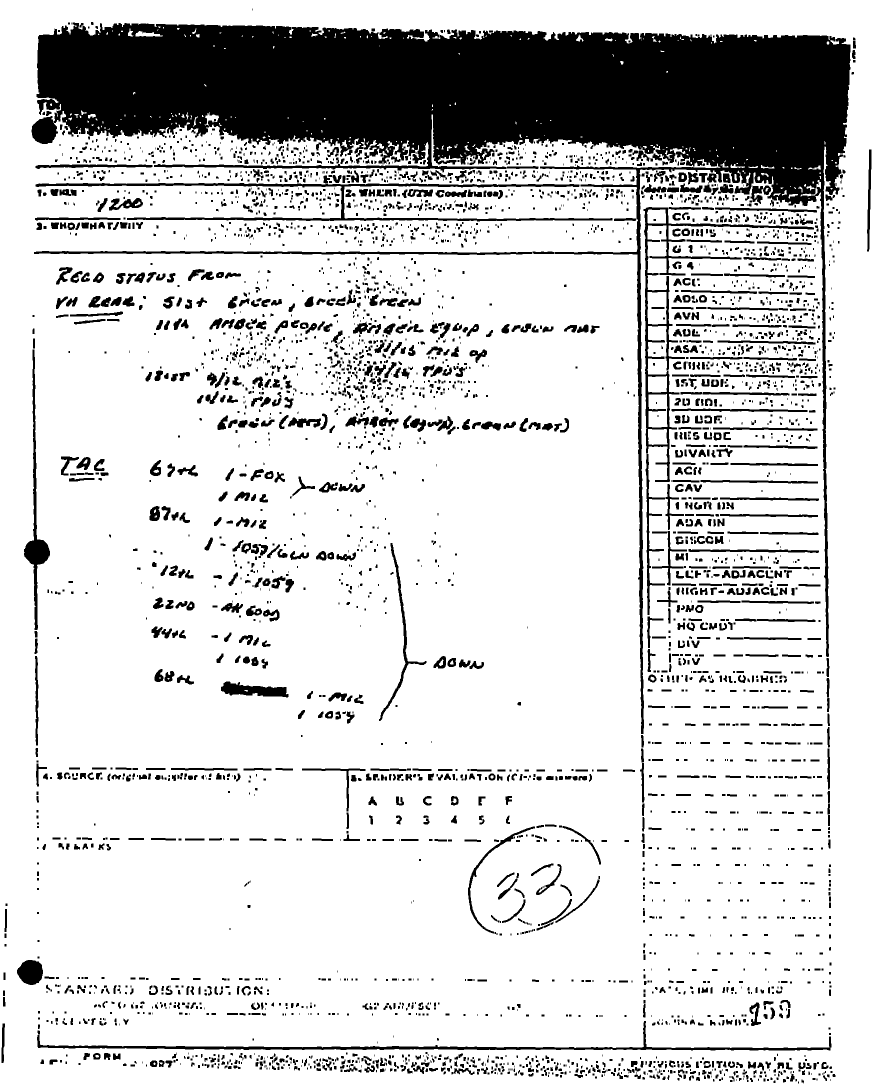 TO:
EVENT
1. WHEN
1200
2. WHERE (UTM Coordinates)
3. WHO/WHAT/WHY
RECD STATUS FROM
VH REAR; 51st GREEN, GREEN, GREEN
11th AMBER PEOPLE, AMBER EQUIP, GREEN MAT
11/15 MIL OP
TPU'S
9/12 MIL'S
10/12 TPU'S
GREEN (PERS), AMBER (EQUIP), GREEN (MAT)
TAC 67th 1-FOX
1 MIL
DOWN
87th 1-MIL
1-1059/GEN DOWN
12th - 1-1059
22ND - ALL GOOD
44th - 1 MIL
1 1059
DOWN
68th 1-MIL
1 1059
4. SOURCE (original supplier of info)
5. SENDER'S EVALUATION (Circle answers)
A B C D E F
1 2 3 4 5 6
REMARKS
33
STANDARD DISTRIBUTION:
RECEIVED BY
FORM
DISTRIBUTION
CG
CORPS
G 2
G 4
ADSO
AVN
ADE
ASA
1ST BDE
2D BDE
3D BDE
RES BDE
DIVARTY
ACR
CAV
ENGR BN
ADA BN
DISCOM
MI
LEFT-ADJACENT
RIGHT-ADJACENT
PMO
HQ CMDT
DIV
DIV
OTHER AS REQUIRED
DATE/TIME RECEIVED
JOURNAL NUMBER
PREVIOUS EDITION MAY BE USED.